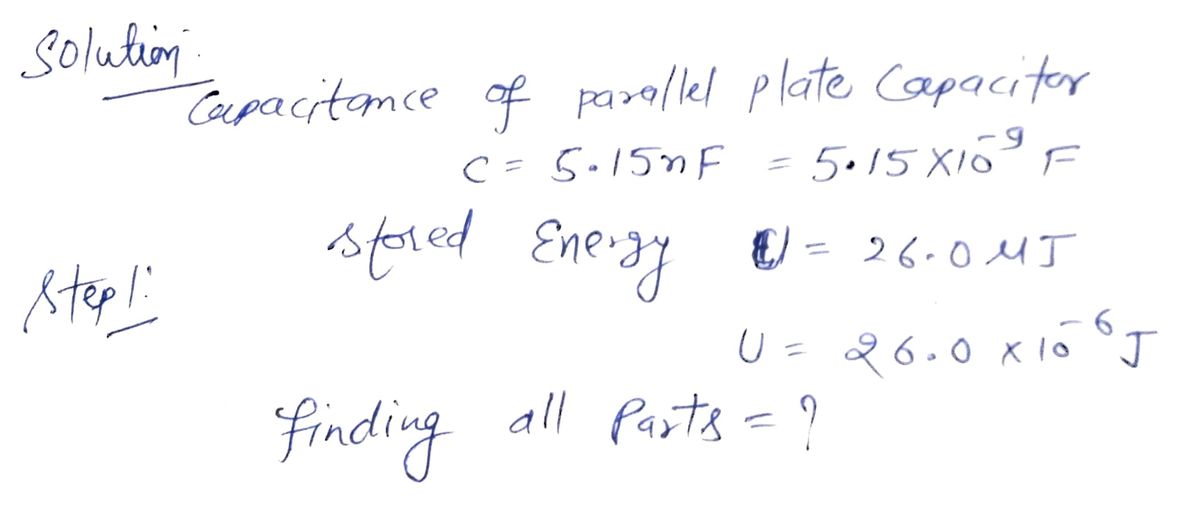 Solution:
Capacitance of parallel plate Capacitor
C = 5.15nF = 5.15 X10⁻⁹ F
stored Energy U = 26.0 μJ
Step1:
U = 26.0 x 10⁻⁶ J
finding all Parts = ?